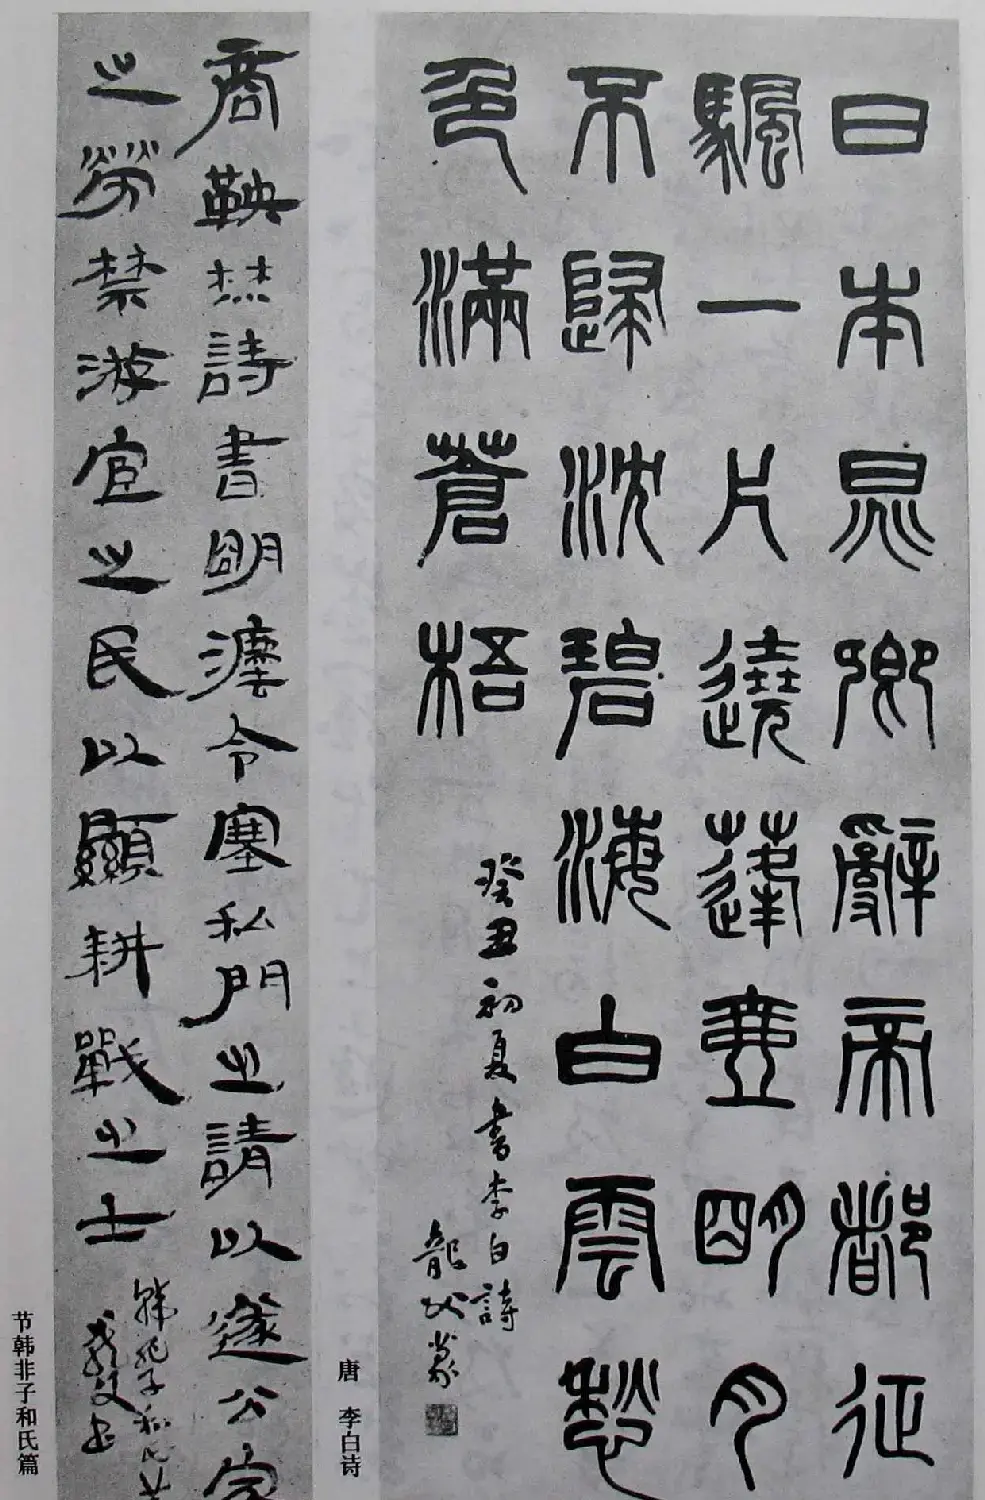 日本晁卿辭帝都征
颿一片遶蓬壺明月
不歸沈碧海白雲愁
色滿蒼梧
癸丑初夏書李白詩
篆
唐 李白诗
商鞅焚詩書明灋令塞私門之請以遂公家
之勞禁游宦之民以顯耕戰之士
韓非子和氏
节韩非子和氏篇